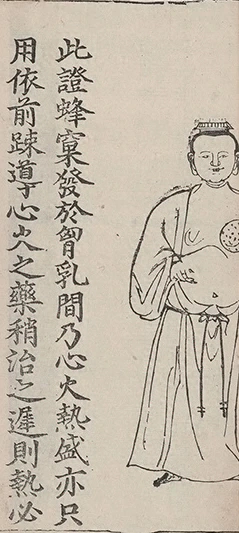 此證蜂窠發於胷乳間乃心火熱盛亦只
用依前踈導心火之藥稍治之遲則熱必